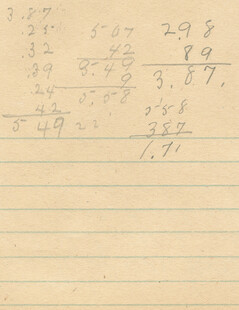 3.87
.25
.32
.39
.24
42
5 49
5 07
42
5.49
9
5.58
2.98
89
3.87.
558
387
1.71